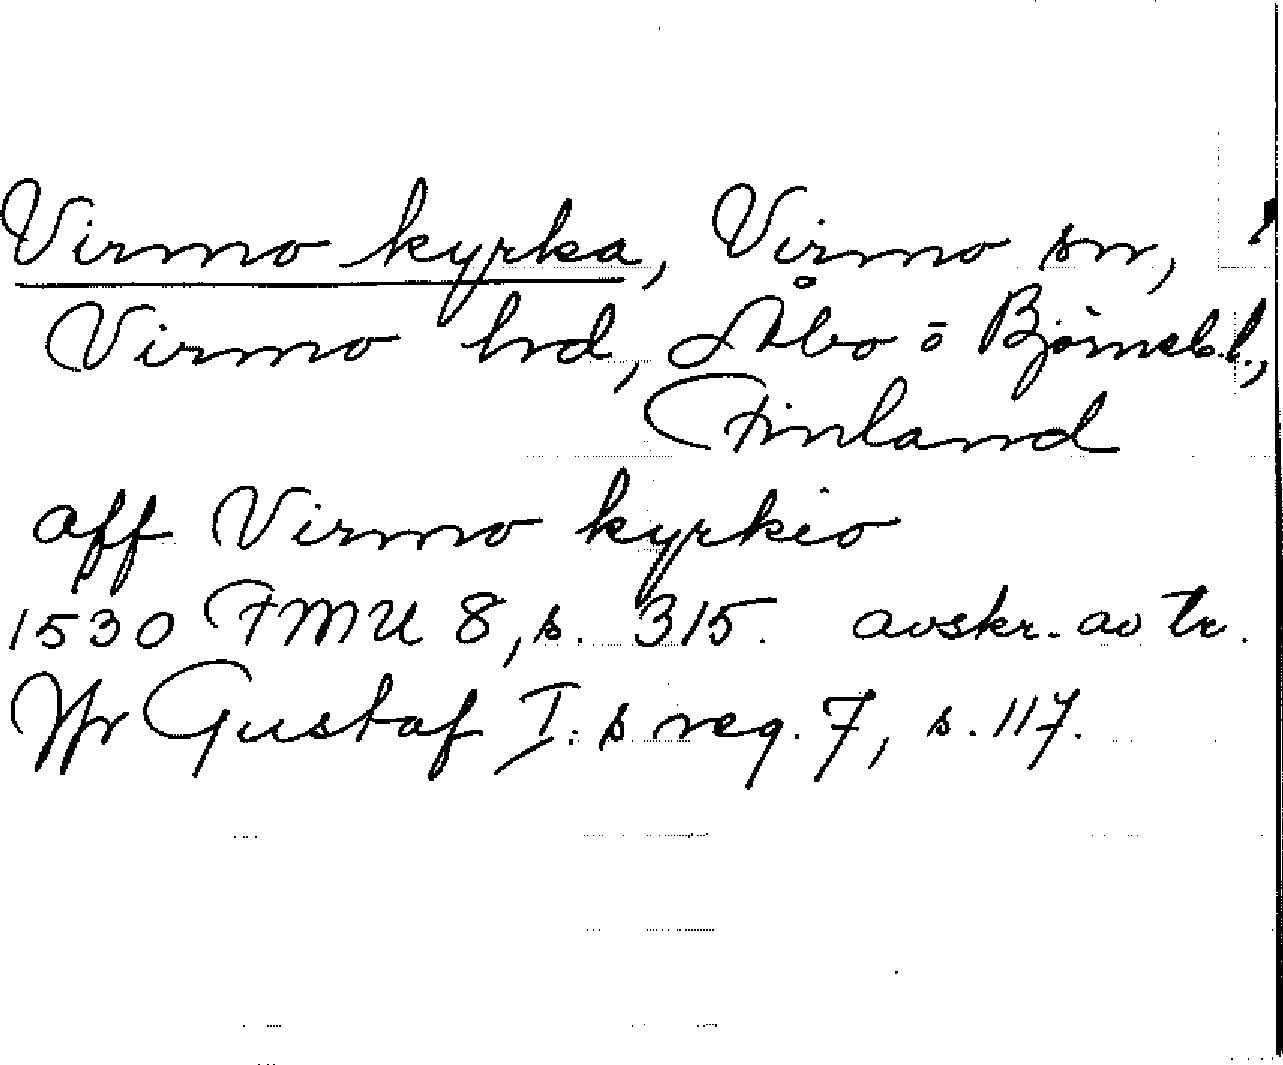 Virmo kyrka, Virmo sn,
Virmo hd, Åbo o Björneb.l.,
Finland
aff Virmo kyrkio
1530 FMU 8, s. 315. avskr. av tr.
Gustaf I:s reg. 7, s. 117.